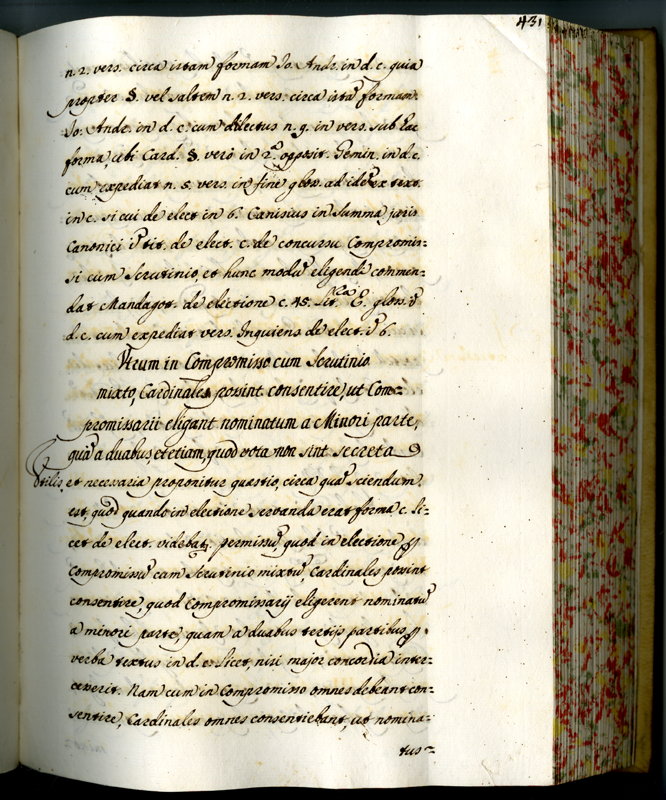 431
n. 2. vers. circa istam formam Io. Andr. in d. c. quia
propter §. vel saltem n. 2. vers. circa istā formam
Io. Andr. in d. c. cum dilectus n. 9. in vers. sub hac
forma, ubi Card. §. verò in 2.º opposit. Gemin. in d. c.
cum expediat n. 5. vers. in fine glos. ad idē ex text.
in c. si cui de elect. in 6. Canisius in Summa juris
Canonici tit. de elect. c. de concursu Compromis=
si cum Scrutinio, et hunc modū eligendi commen=
dat Mandagot. de electione c. 45. lit. E. glos.
d. c. cum expediat vers. Inquiens de elect. 6.
Utrum in Compromisso cum Scrutinio
mixto, Cardinales possint consentire, ut Com=
promissarii eligant nominatum a Minori parte,
quā a duabus et etiam, quod vota non sint secreta
Utilis, et necessaria proponitur quæstio, circa quā sciendum
est, quod quando in electione servanda erat forma c. Li=
cet de elect. videbat. permissū, quod in electione p
Compromissū cum Scrutinio mixtū, Cardinales possint
consentire, quod Compromissarij eligerent nominatū
a minori parte, quam a duabus tertijs partibus p
verba textus in d. c. Licet, nisi major concordia inter=
cesserit. Nam cum in Compromisso omnes debeant con=
sentire, Cardinales omnes consentiebant, ut nomina=
tus=